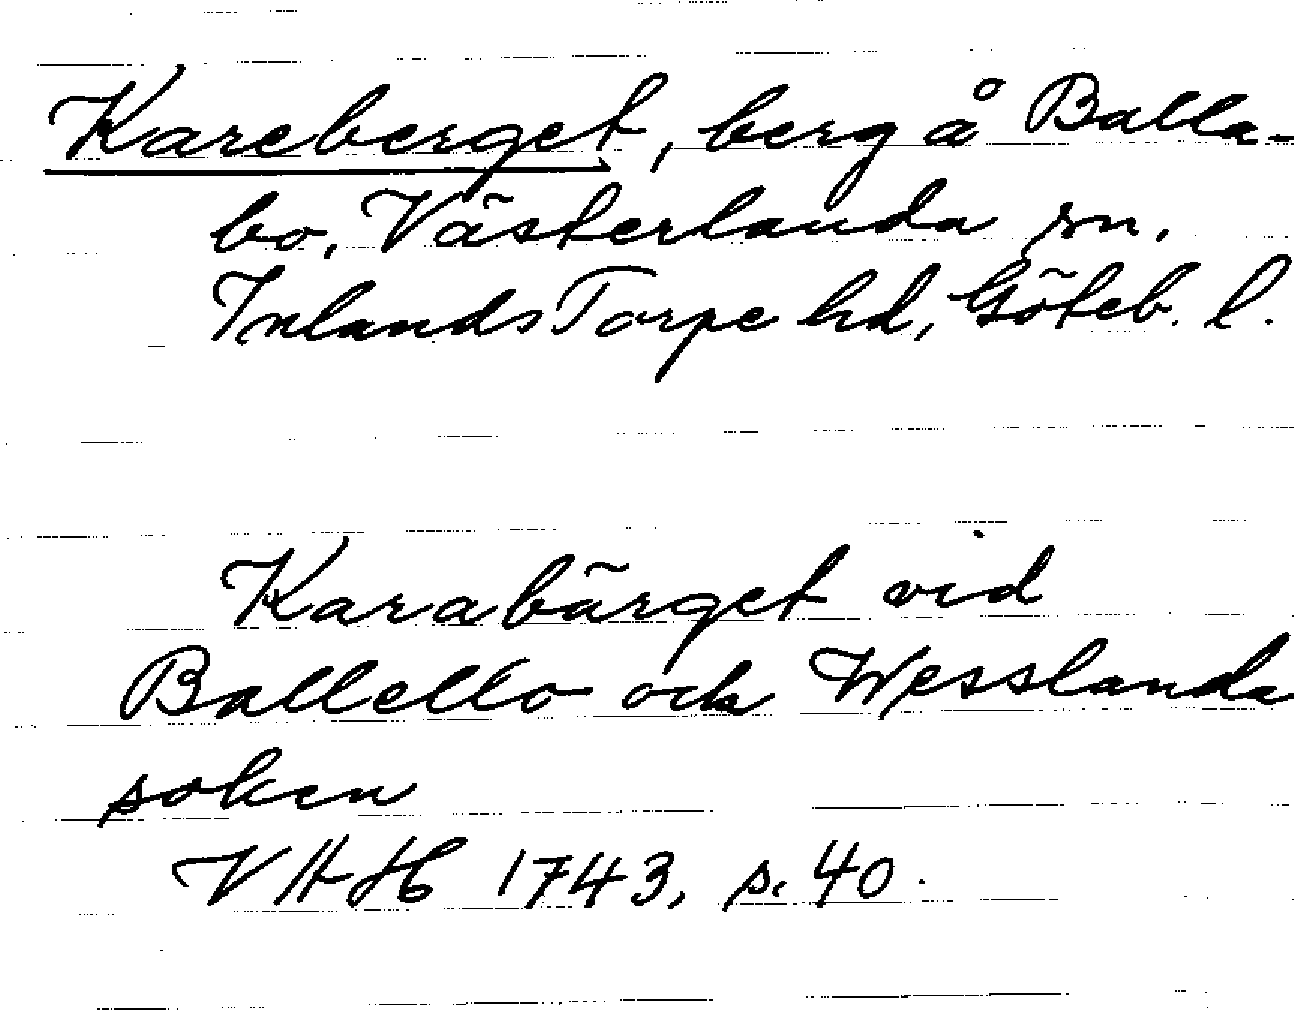 Kareberget, berg å Balla-
bo, Västerlanda sn.
Inlands Torpe hd, Göteb. l.
Karabärget vid
Ballello och Wesslanda
soken
VAH 1743, s. 40.